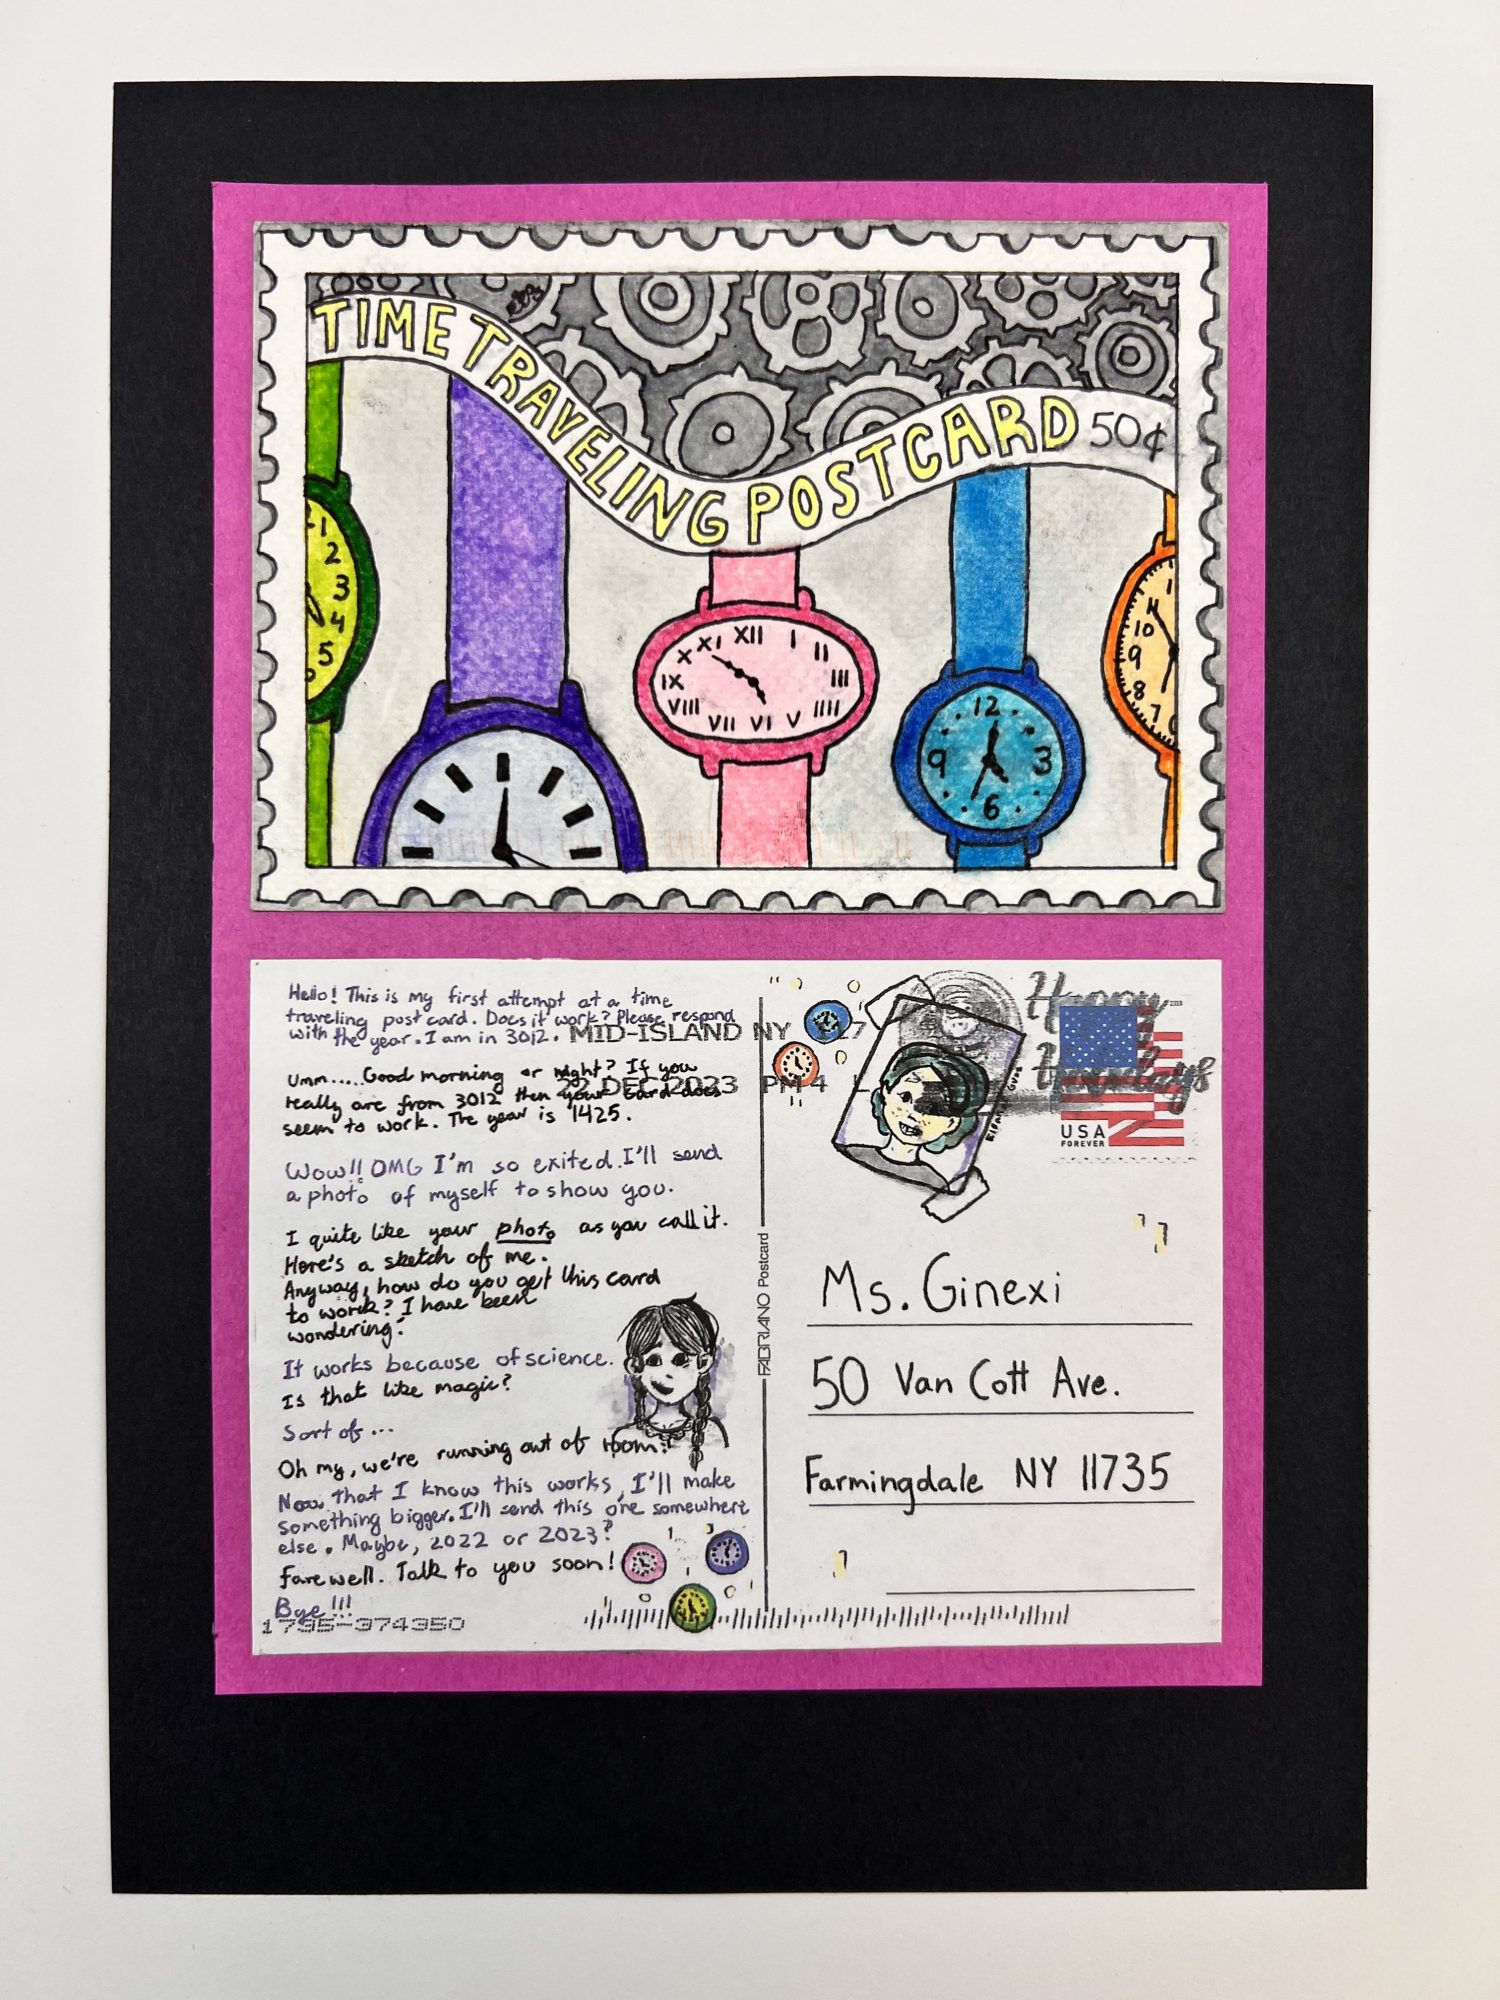 TIME TRAVELING POSTCARD 50¢
1
2
3
4
5
6
XII
I
II
III
IIII
V
VI
VII
VIII
IX
X
XI
12
3
6
9
11
10
9
8
7
Hello! This is my first attempt at a time
traveling postcard. Does it work? Please respond
with the year. I am in 3012.
MID-ISLAND NY 117
22 DEC 2023 PM 4 L
Umm.....Good morning or night? If you
really are from 3012 then your card does
seem to work. The year is 1425.
Wow!! OMG I'm so exited. I'll send
a photo of myself to show you.
I quite like your photo as you call it.
Here's a sketch of me.
Anyway, how do you get this card
to work? I have been
wondering.
It works because of science.
Is that like magic?
Sort of...
Oh my, we're running out of room!
Now that I know this works, I'll make
something bigger. I'll send this one somewhere
else. Maybe, 2022 or 2023?
Farewell. Talk to you soon!
Bye!!!
1795-374350
FABRIANO Postcard
Happy
Holidays
USA
FOREVER
Ms. Ginexi
50 Van Cott Ave.
Farmingdale NY 11735